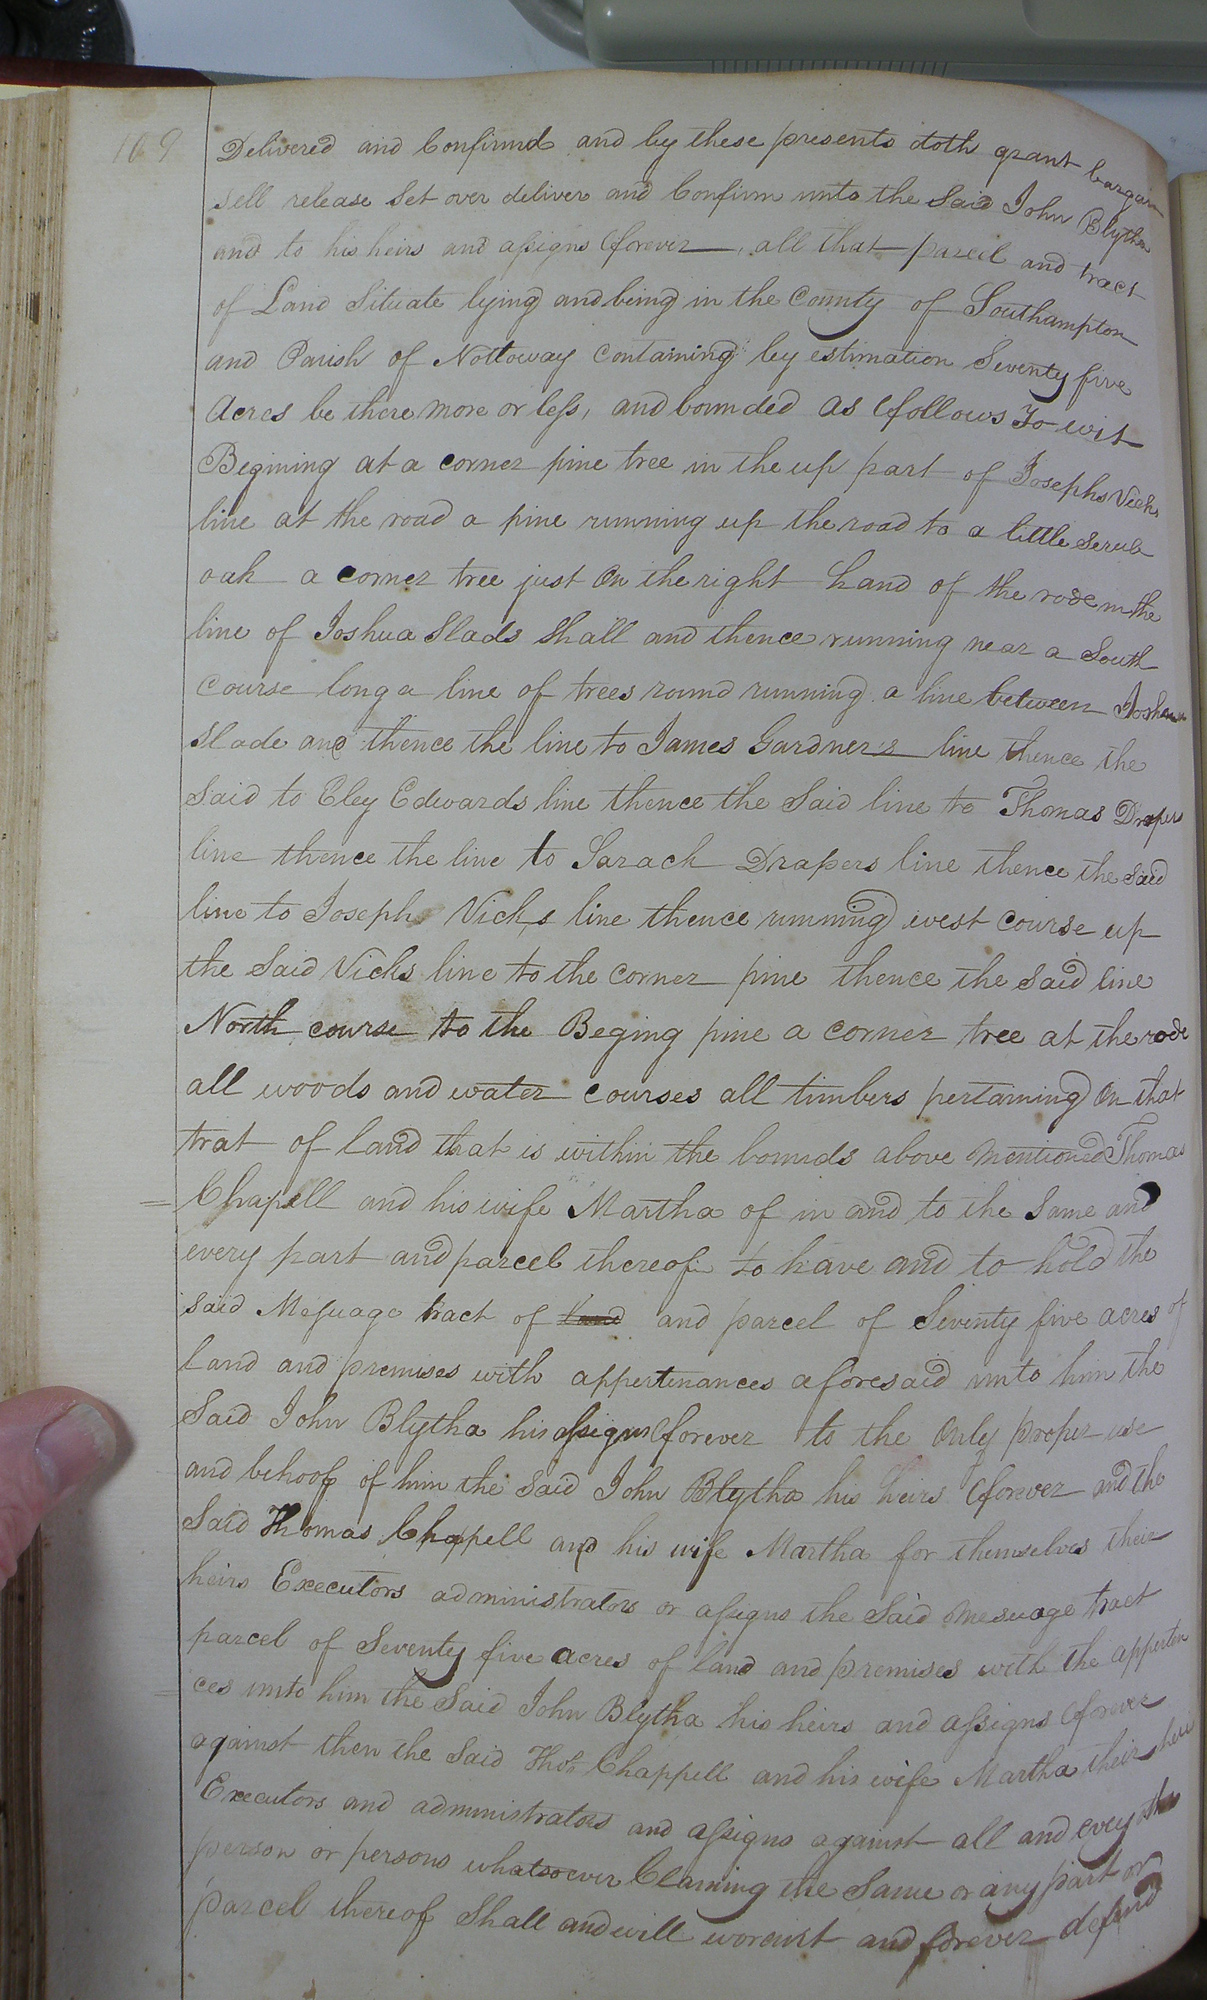 169
Delivered and Confirmd and by these presents doth grant bargain
sell release set over deliver and Confirm unto the Said John Blytha
and to his heirs and assigns forever, all that parcel and tract
of Land Situate lying and being in the County of Southampton
and Parish of Nottoway Containing by estimation Seventy five
Acres be there more or less, and bounded as follows To wit
Begining at a corner pine tree in the up part of Josephs Vicks
line at the road a pine running up the road to a little scrub
oak a corner tree just on the right hand of the rode in the
line of Joshua Slads Shall and thence running near a South
Course long a line of trees round running a line between Joshua
Slade and thence the line to James Gardner's line thence the
Said to Eley Edwards line thence the Said line to Thomas Drapers
line thence the line to Sarach Drapers line thence the Said
line to Joseph Vicks line thence running west course up
the Said Vicks line to the corner pine thence the Said line
North course to the Beging pine a corner tree at the rode
all woods and water courses all timbers pertaining on that
trat of land that is within the bounds above mentioned Thomas
Chapell and his wife Martha of in and to the Same and
every part and parcel thereof to have and to hold the
said Messuage tract of land and parcel of Seventy five acres of
land and premises with appertenances aforesaid unto him the
Said John Blytha his assigns forever to the only proper use
and behoof of him the Said John Blytha his heirs forever and the
Said Thomas Chappell and his wife Martha for themselves their
heirs Executors administrators or assigns the Said mesuage tract
parcel of Seventy five acres of land and premises with the apperten
ces unto him the Said John Blytha his heirs and assigns forever
against then the Said Thos Chappell and his wife Martha their heirs
Executors and administrators and assigns against all and evey other
person or persons whatsoever Claming the Same or any part or
parcel thereof Shall and will worent and forever defend